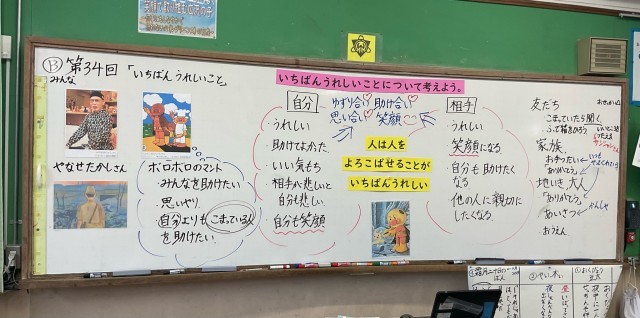 B 第34回 「いちばんうれしいこと」
みんな
やなせたかしさん
ボロボロのマント
・みんなを助けたい
・思いやり
・自分よりもこまっている人
を助けたい。
いちばんうれしいことについて考えよう。
自分
ゆずり合い 助け合い
思い合い 笑顔
相手
・うれしい
・助けてよかった
・いい気もち
・相手が悲しいと
自分も悲しい
・自分も笑顔
人は人を
よろこばせることが
いちばんうれしい
・うれしい
・笑顔になる
・自分も助けたく
なる
・他の人に親切に
したくなる
友だち
こまっていたら聞く
家族
お手つだい
ありがとう
地いき、大人
「ありがとう」
あいさつ
かんしゃ
おうえん